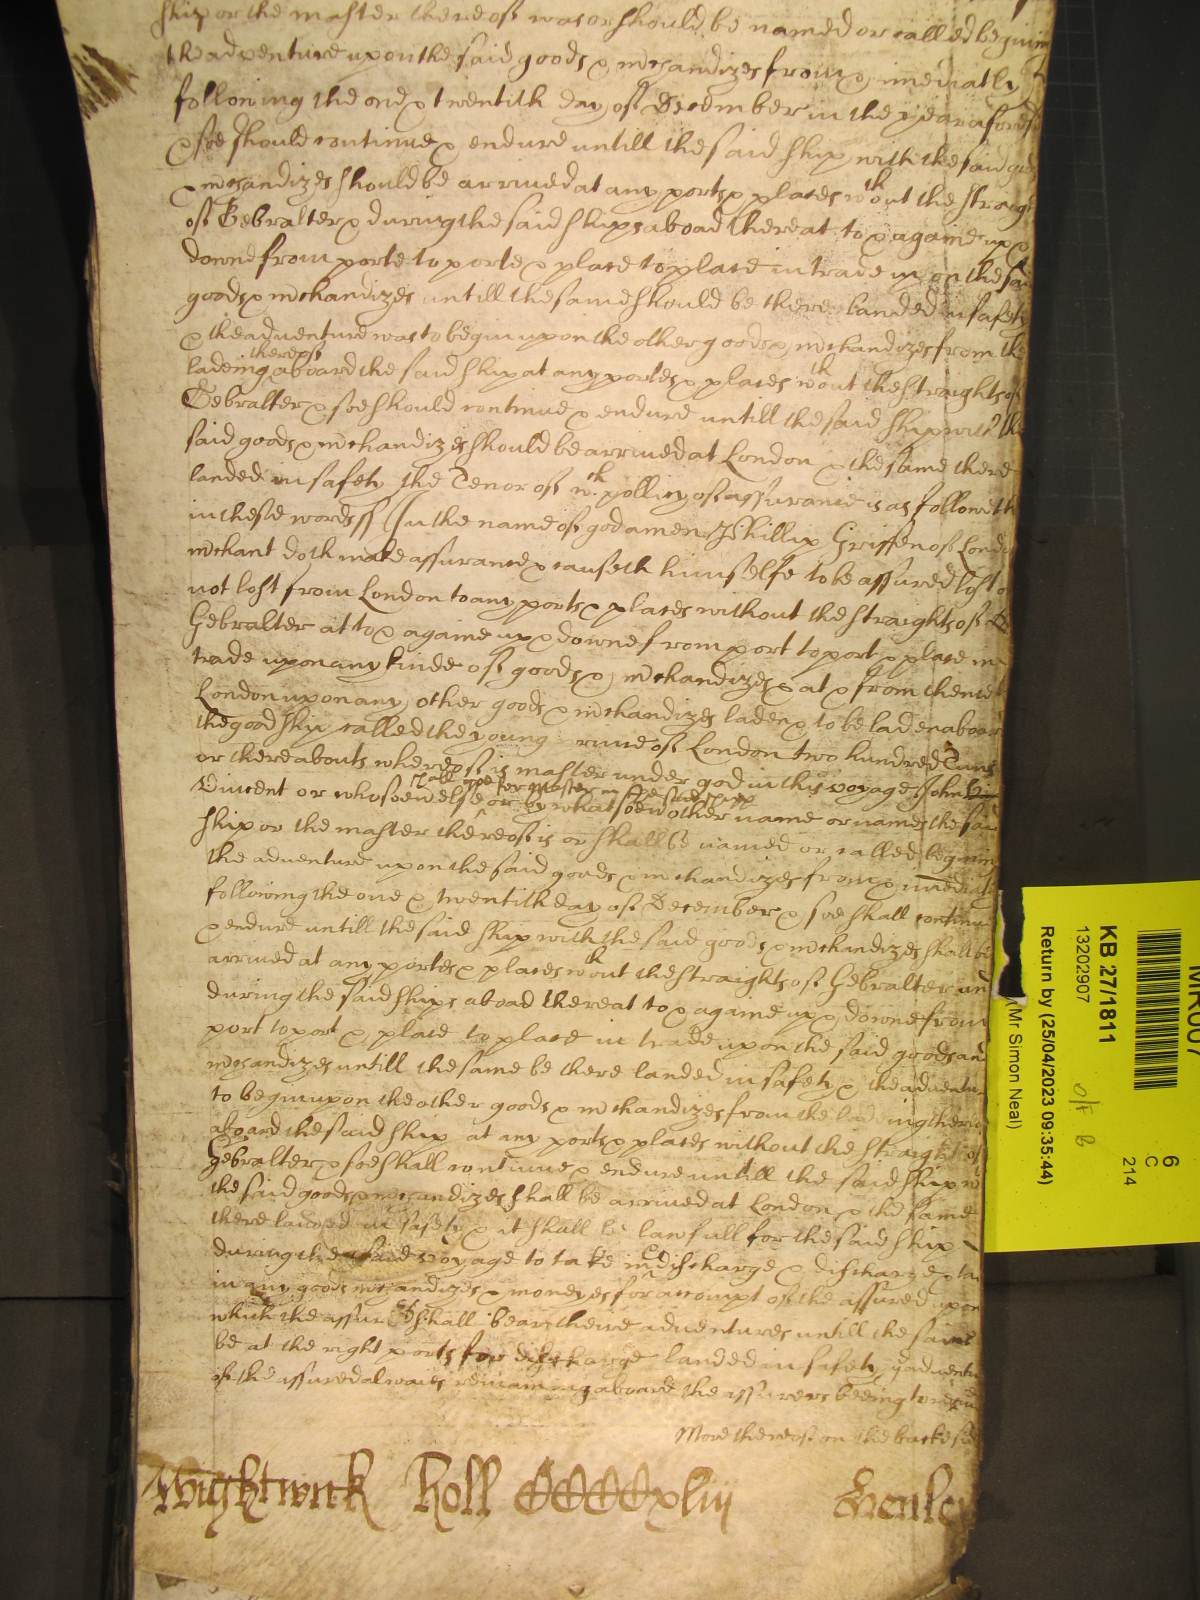 ship or the master thereof was or should be named or called beginin
the adventure upon the said goods & mchandizes from & imediatly
following the one & twentith day of December in the year afores
& soe should continue & endure untill the said ship with the said goo
& mchandizes should be arrived at any ports & places wthout the straigh
of Gebralter & during the said ships aboad thereat to & againe up &
downe from porte to porte & place to place in trade upon the said
goods & mchandizes untill the same should be there landed in safety
& the adventure was to begin upon the other goods & mchandizes from the
ladeing thereof aboard the said ship at any portes & places wthout the straights of
Gebralter & soe should continue & endure untill the said ship with the
said goods & mchandizes should be arrived at London & the same there
landed in safety the Tenor of wch pollicy of assurance is as followeth
in these words ss In the name of god amen Phillip Griffen of Londo
mchant doth make assurance & causeth himselfe to be assured lost o
not lost from London to any ports & places without the straights of
Gebralter at to & againe up & downe from port to port & place in
trade upon any kinde of goods & mchandizes & at & from thence t
London upon any other goods & mchandizes laden & to be laden aboar
the good ship called the young of London two hundred Tuns
or thereabouts whereof is master under god in this voyage John
Vincent or whosoever else shall goe for master in the said shipp or by whatsoever other name or names the said
ship or the master thereof is or shall be named or called begining
the adventure upon the said goods & mchandizes from & imediat
following the one & twentith day of December & soe shall continue
& endure untill the said ship with the said goods & mchandizes shall be
arrived at any portes & places wthout the straights of Gebralter an
during the said ships aboad thereat to & againe up & downe from
port to port & place to place in trade upon the said goods and
mchandizes untill the same be there landed in safety & the adventu
to begin upon the other goods & mchandizes from the ladeing thereo
aboard the said ship at any ports & places without the straights of
Gebralter & soe shall continue & endure untill the said ship w
the said goods & mchandizes shall be arrived at London & the same
there landed in safety & it shall be lawfull for the said ship
during the said voyage to take in & discharge & discharge & ta
in any goods mchandizes & moneyes for accompt of the assured upon
which the assurers shall bear theire adventures untill the same
be at the right ports for discharge landed in safety
of the assured alwaies remaining aboard the assurers beeing
More thereof on the backe side
Wightwick Roll CCCCxliij Henley
MR007
6
C
214
KB 27/1811
13202907
Return by (25/04/2023 09:35:44)
(Mr Simon Neal)